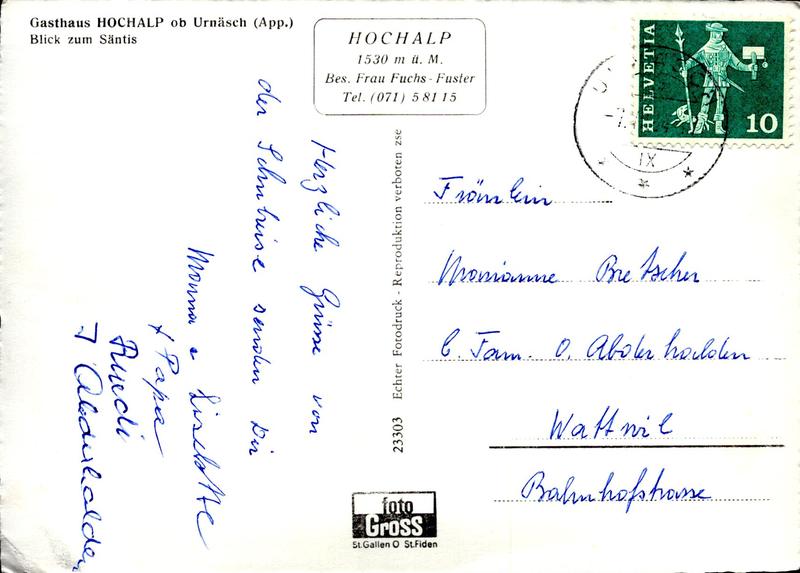 Gasthaus HOCHALP ob Urnäsch (App.)
Blick zum Säntis
HOCHALP
1530 m ü. M.
Bes. Frau Fuchs-Fuster
Tel. (071) 5 81 15
HELVETIA
10
IX
Herzliche Grüsse von
der Schulreise senden Dir
Mama & Liselotte
+ Papa
Ruedi
Abderhalden
23303 Echter Fotodruck - Reproduktion verboten zse
Fräulein
Marianne Bretscher
b. Fam. O. Abderhalden
Wattwil
Bahnhofstrasse
foto
Gross
St.Gallen O St.Fiden